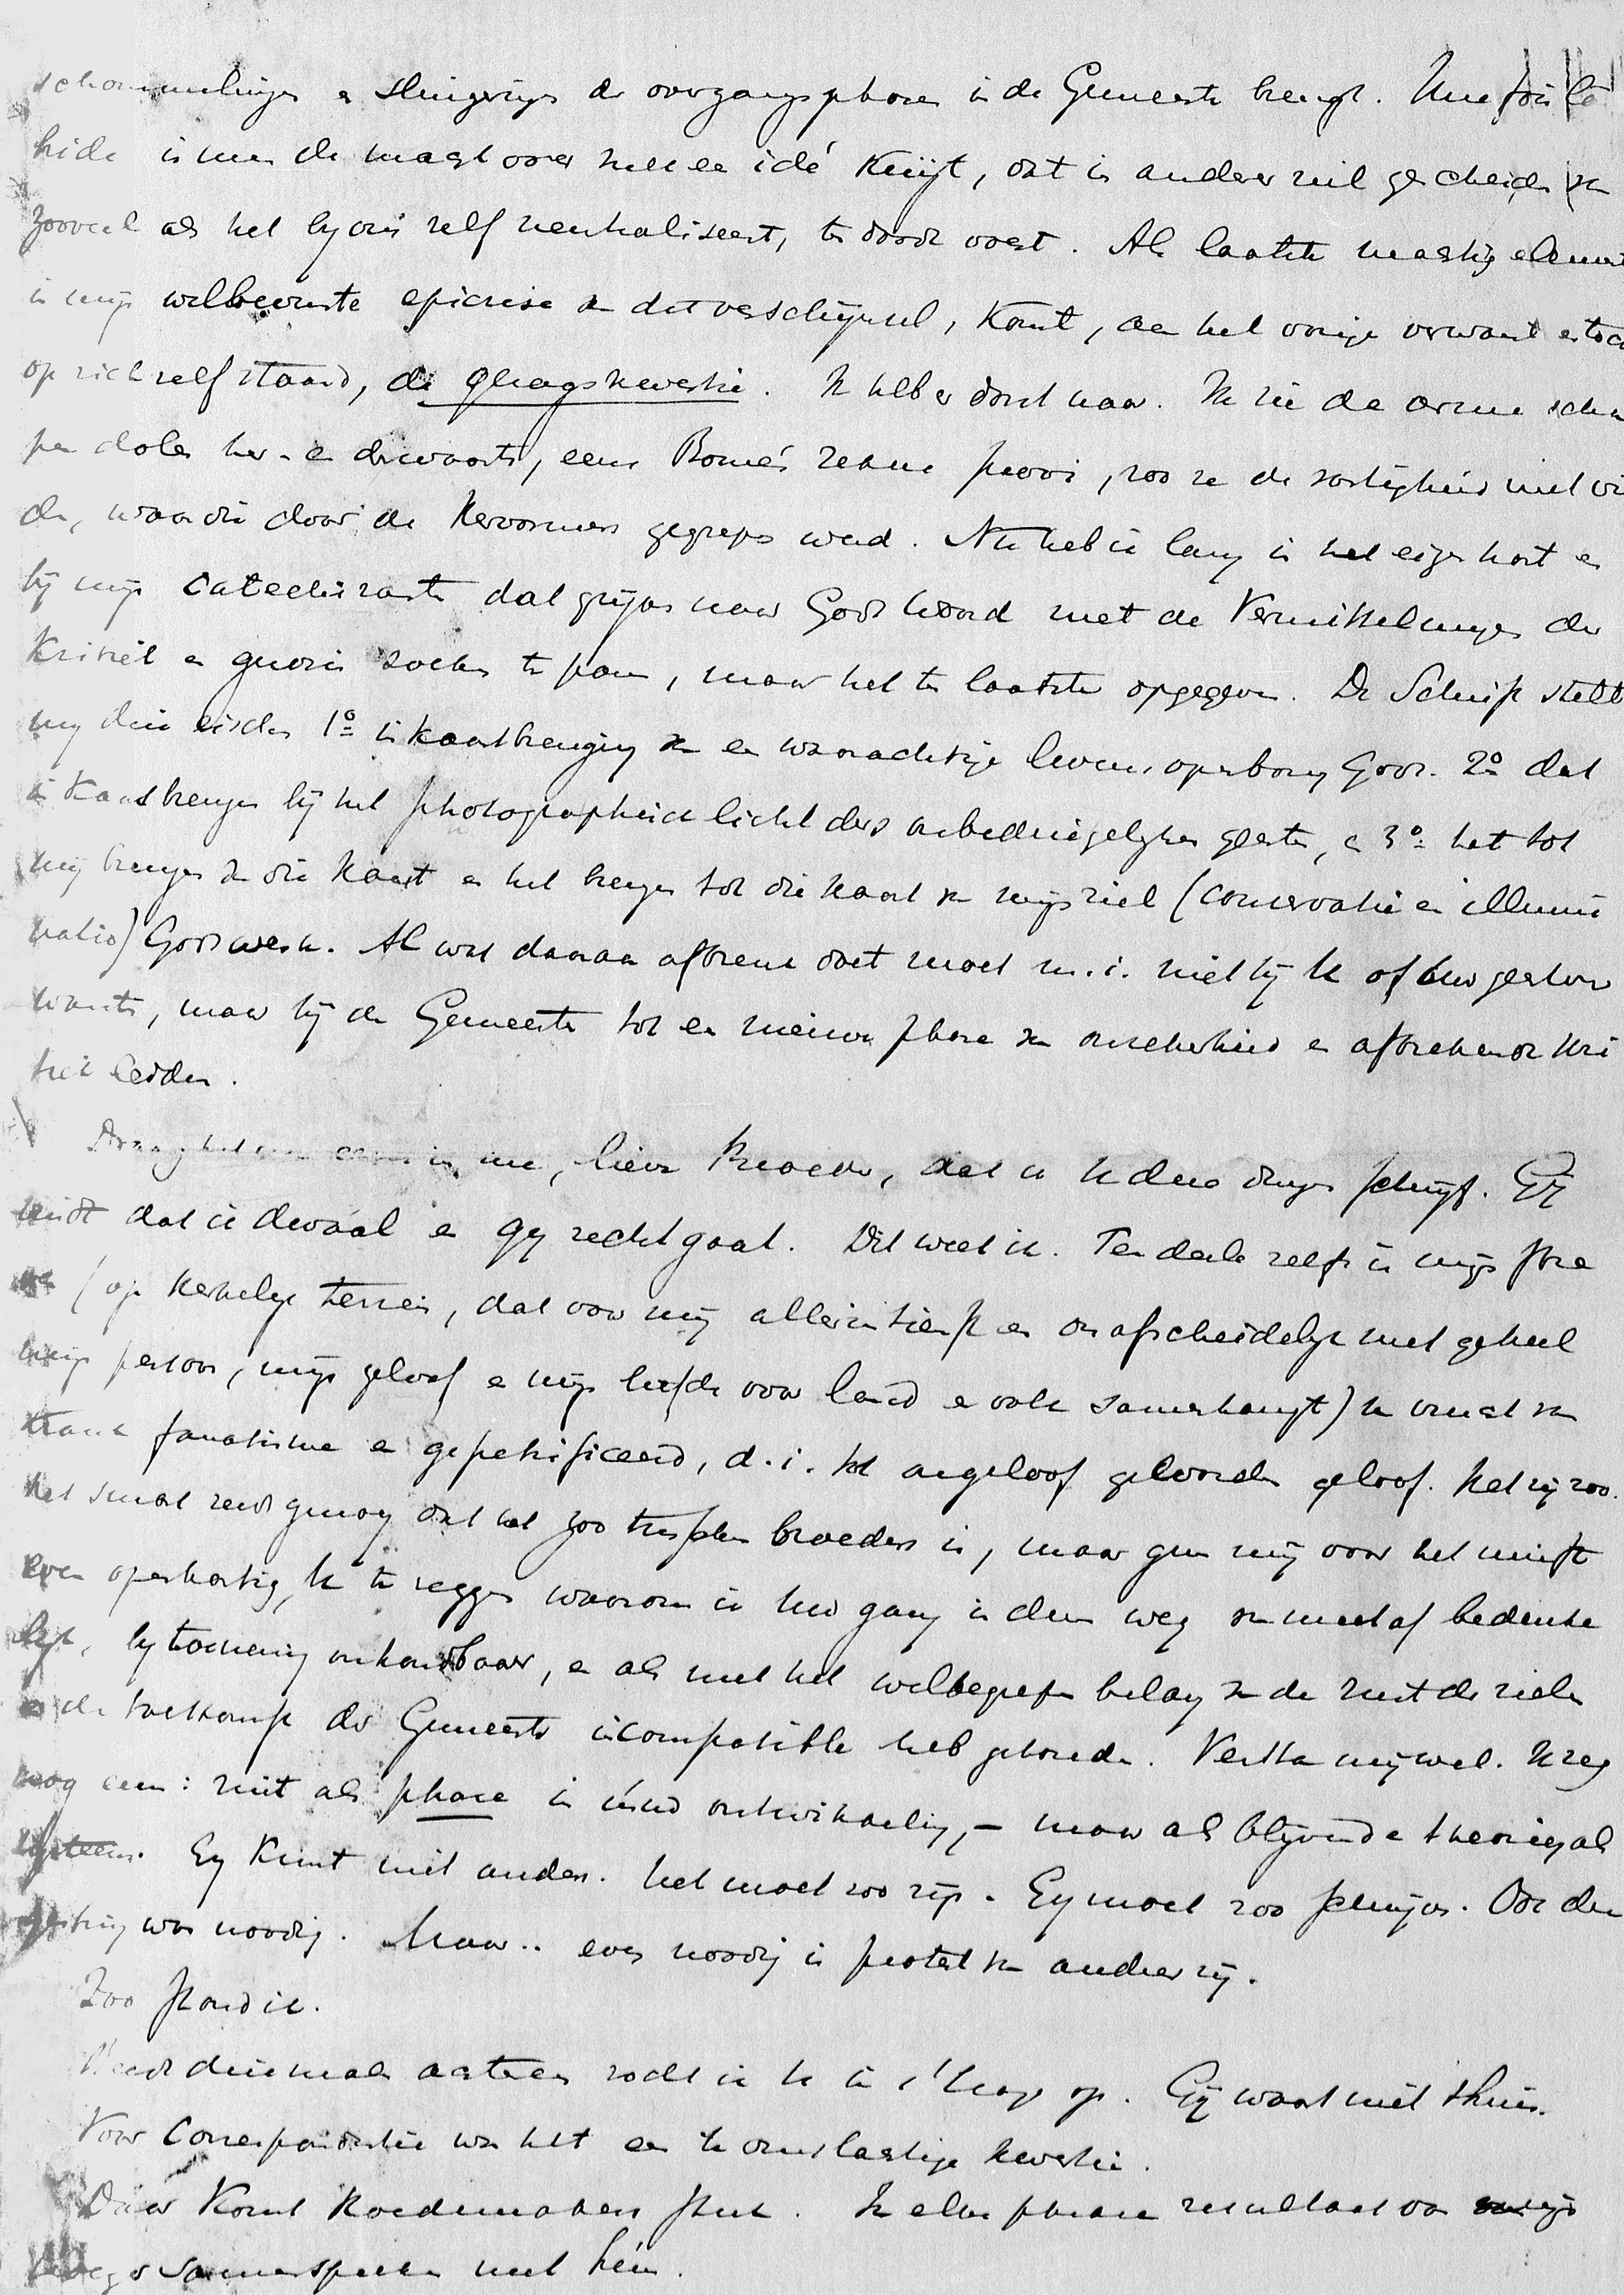 schommelingen en slingeringen der overgangsphasen in de Gemeente brengt. Une fois
is men de magt over zulk een idé kwijt, dat in anderer ziel gescheiden van
zooveel als het bij ons zelf neutraliseert, te dood voert. Als laatste machtig element
in mijn welbewuste epicrise van dit verschijnsel, komt, aan het vorige verwant en toch
op zich zelf staand, de gezagskwestie. Ik heb er dorst naar. Ik zie de arme scha
pen dolen her- en derwaarts, eene Rome's zekere prooi, zoo ze de vastigheid niet vin
den, waar die door de Hervormers gegrepen werd. Nu heb ik lang in het eigen hart en
bij mijn catechisanten dat grijpen naar Gods Woord met de Vermittelungen der
Kritiek en gnosis zoeken te paren, maar het ten laatste opgegeven. De Schrift stelt
mij drie eischen 1º in kaartbrenging van een waarachtige levensopenbaring Gods. 2º dat
in Kaart brengen bij het photographisch licht des onbedriegelijken geestes, en 3º het tot
mij brengen van die kaart en het brengen tot die kaart van mijn ziel (conservatie en illumi
natio) Gods werk. Al wat daaraan afbreuk doet moet m.i. niet bij U of Uw geestver
wanten, maar bij de Gemeente tot een nieuwe phase van onzekerheid en afbrekende kri
tiek leiden.
me, lieve Broeder, dat ik U deze dingen schrijf. Gij
vindt dat ik dwaal en gij recht gaat. Dit weet ik. Ten deele zelfs is mijn stre
ven (op kerkelijk terrein, dat voor mij allerintiemst en onafscheidelijk met geheel
mijn persoon, mijn geloof en mijn liefde voor land en volk samenhangt) U vrucht van
fanatisme en gepetrificeerd, d.i. tot ongeloof geworden geloof. Het zij zoo.
Het smart reeds genoeg dat het zoo tusschen broeders is, maar gun mij voor het minst
even openhartig, U te zeggen waarom ik Uw gang in dien weg van meet af bedenke
lijk, bij toeneming onhoudbaar, en als met het welbegrepen belang van de rust der zielen
en de toekomst der Gemeente incompatible heb gehouden. Versta mij wel. Ik zeg
nog eens: niet als phase in Uw ontwikkeling, — maar als blijvende theorie, als
systeem. Gij kunt niet anders. Het moet zoo zijn. Gij moet zoo schrijven. Ook die
was noodig. Maar.. even noodig is protest van anderer zij.
Zoo stond ik.
Reeds driemalen achtereen zocht ik U in 's Hage op. Gij waart niet thuis.
Voor Correspondentie was het een te omslachtige kwestie.
Daar komt Hoedemakers stuk. In elke phrase resultaat van
samenspreken met hém.